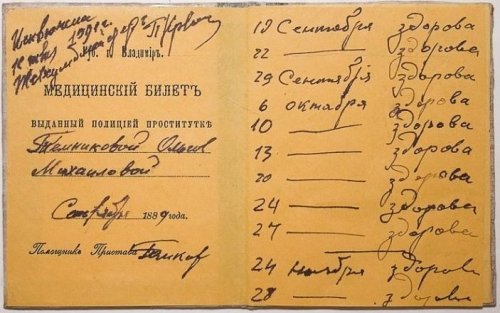 г. Владиміръ.
МЕДИЦИНСКІЙ БИЛЕТЪ
ВЫДАННЫЙ ПОЛИЦІЕЙ ПРОСТИТУТКѢ
Темниковой Ольгѣ
Михайловой
Сентября 1889 года.
Помощникъ Пристава
19 Сентября здорова
22 — здорова
29 Сентября здорова
6 октября здорова
10 — здорова
13 — здорова
20 — здорова
24 — здорова
27 — здорова
24 ноября здорова
28 — здорова